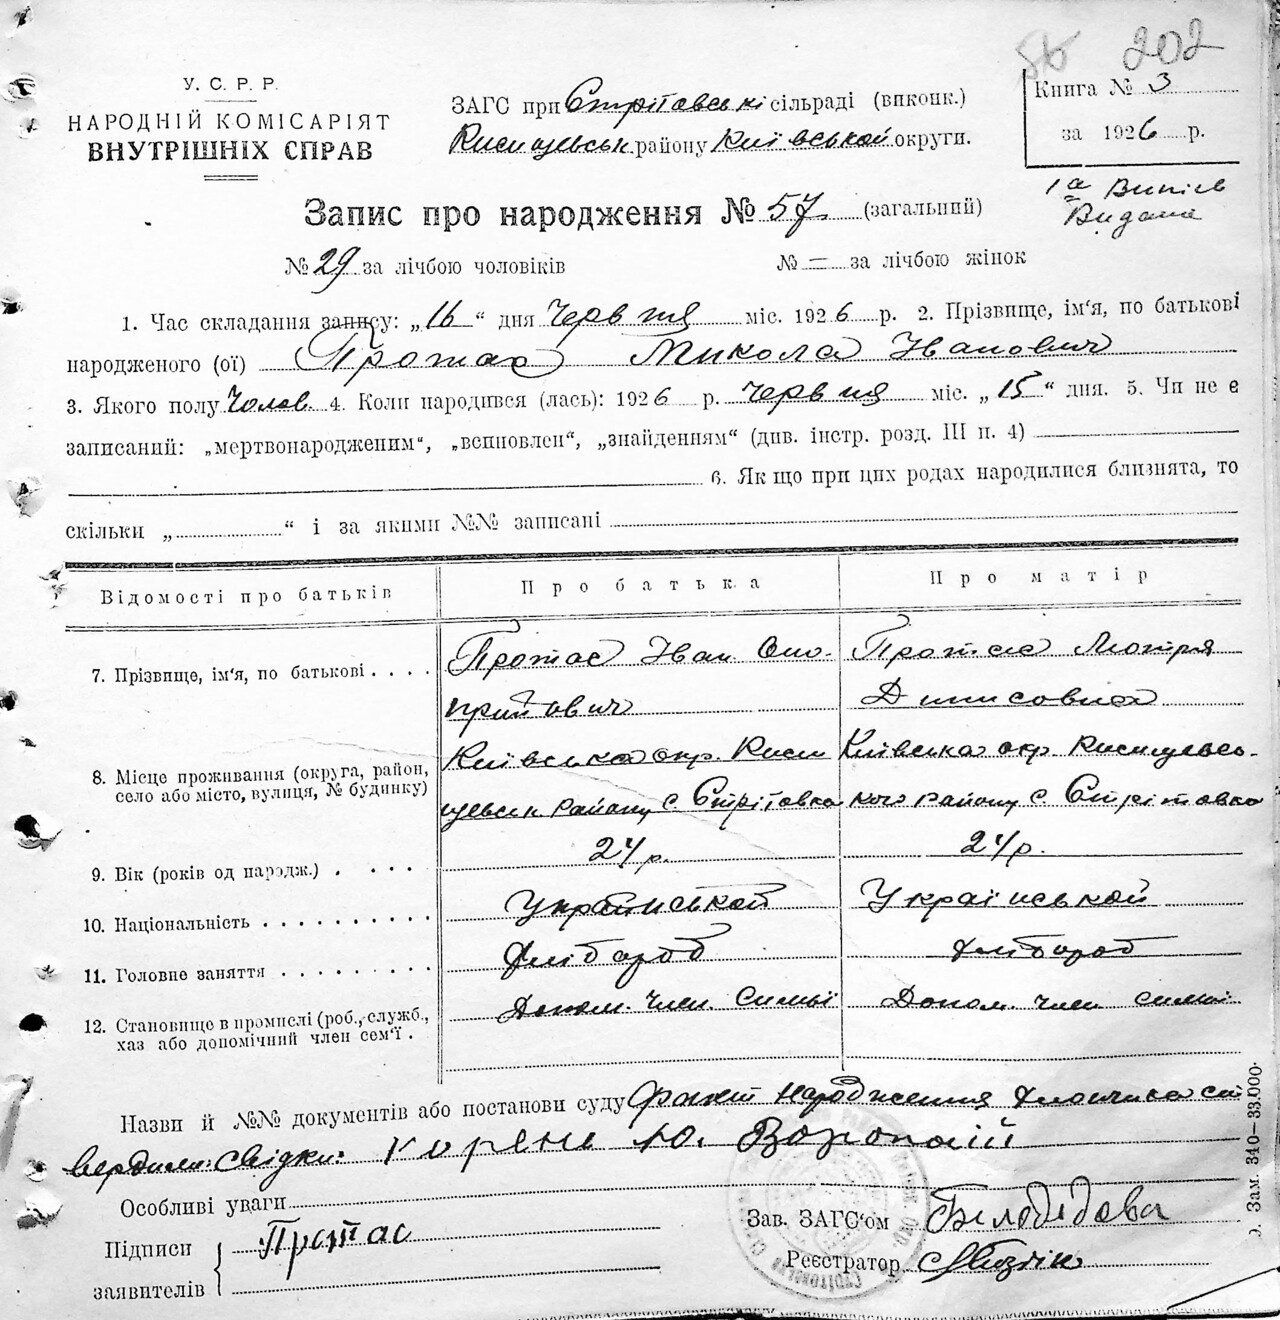 56 202
У. С. Р. Р.
НАРОДНІЙ КОМІСАРІЯТ
ВНУТРІШНІХ СПРАВ
ЗАГС при Стрітовські сільраді (виконк.)
району Київської округи.
Книга № 3
за 1926 р.
1а Випись
Видана
Запис про народження № 57 (загальний)
№ 29 за лічбою чоловіків № — за лічбою жінок
1. Час складання запису: „16“ дня Червня міс. 1926 р. 2. Прізвище, ім'я, по батькові
народженого (ої) Протас Микола Іванович
3. Якого полу Чолов. 4. Коли народився (лась): 1926 р. Червня міс. „15“ дня. 5. Чи не є
записаний: „мертвонародженим“, „всиновлен“, „знайденням“ (див. інстр. розд. III п. 4)
6. Як що при цих родах народилися близнята, то
скільки „ “ і за якими №№ записані
Відомості про батьків Про батька Про матір
7. Прізвище, ім'я, по батькові . . . . Протас Іван Оно- Протас Мотря
прийович Денисовна
8. Місце проживання (округа, район,
село або місто, вулиця, № будинку)
Київська окр. Київська окр.
району с. Стрітовка району с. Стрітовка
9. Вік (років од народж.) . . . . 24 р. 24 р.
10. Національність . . . . . . . . . Української Української
11. Головне заняття . . . . . . . . Хлібороб Хлібороб
12. Становище в промислі (роб., служб.,
хаз або допомічний член сем'ї .
Допом. член симьї Допом. член симьї
Назви й №№ документів або постанови суду Факт народження хлопчика ст
вердили: свідки: Корень Ю. Воропай
Особливі уваги
Підписи
заявителів
Протас
Зав. ЗАГС'ом Білодідова
Реєстратор
Зам. 340—33.000